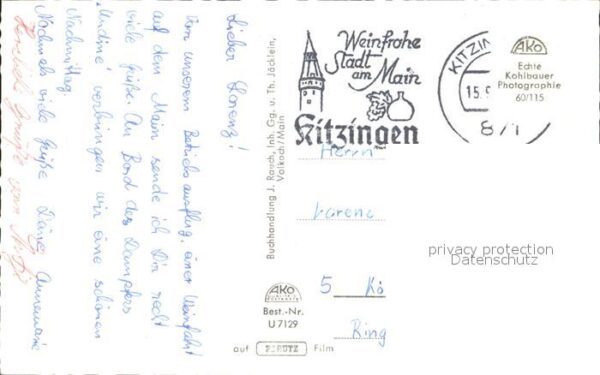 Lieber Lorenz!
Von unserem Betriebsausflug, einer Weinfahrt
auf dem Main sende ich Dir recht
viele Grüße. An Bord des Dampfers
"Undine" verbringen wir eine schönen
Nachmittag.
Nochmals viele Grüße Deine Annemarie
Herzliche Grüße von
Buchhandlung J. Rauch, Inh. Gg. u. Th. Jäcklein,
Volkach/Main
Weinfrohe
Stadt
am Main
Kitzingen
KITZIN
15.9
871
AKO
Echte
Kohlbauer
Photographie
60/115
Herrn
Lorenz
5 Kö
Ring
privacy protection
Datenschutz
AKO
Best.-Nr.
U 7129
auf PERUTZ Film